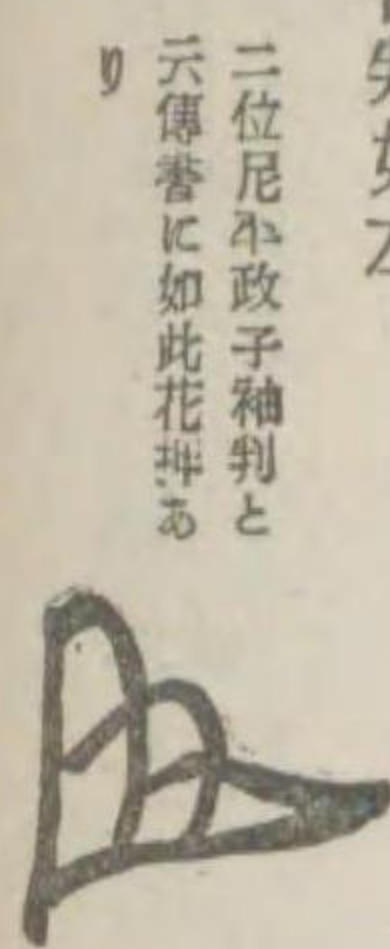 二位尼平政子袖判と
云傳書に如此花押あ
り